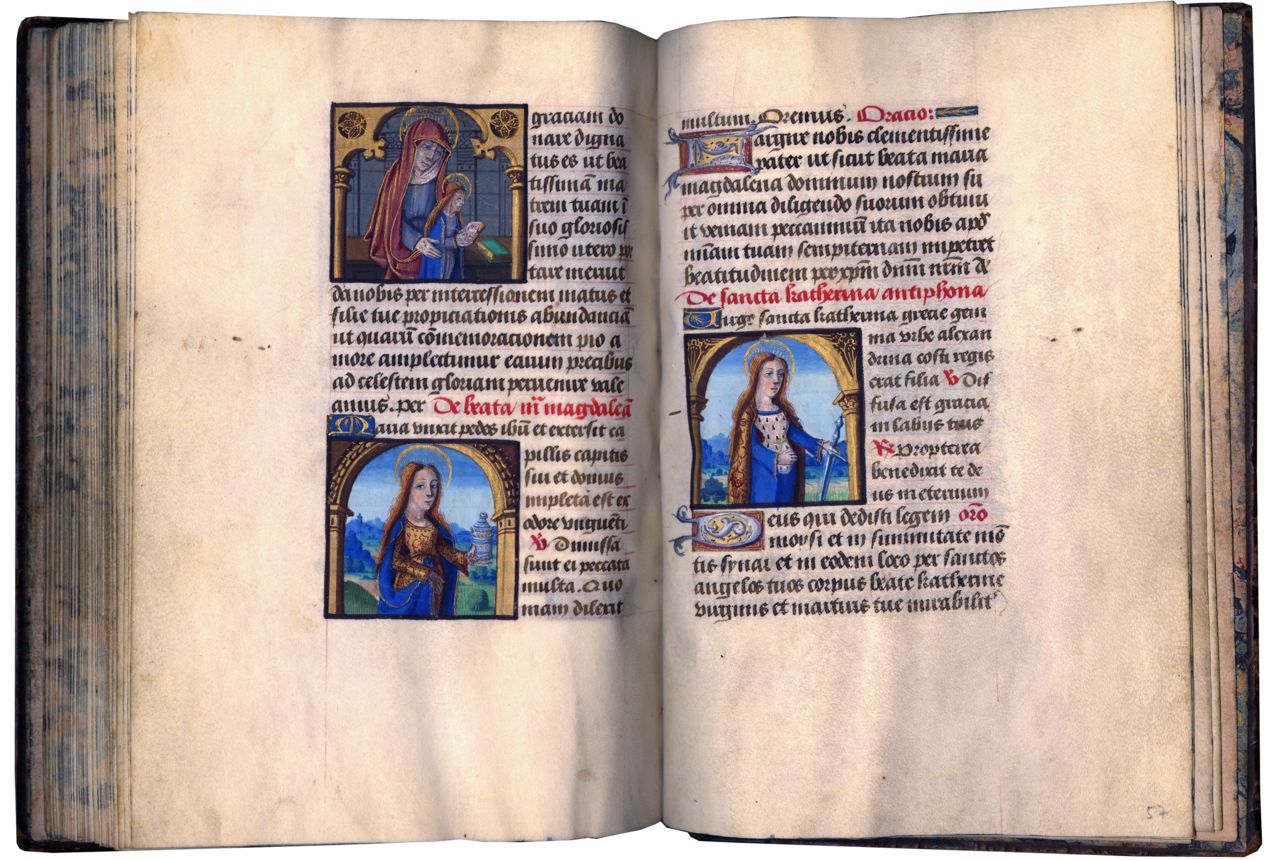 graciam do
nare digna
tus es ut bea
tissimā ma
trem tuam ī
suo gloriosis
simo utero por
tare meruit
da nobis per intercessionem matris et
filie tue propiciationis abundanciā
ut quarū cōmemorationem pio a
more amplectimur earum precibus
ad celestem gloriam peruenire vale
amus. per De beata mā magdaleā
Maria vnxit pedes ihū et extersit ca
pillis capitis
sui et domus
impleta est ex
odore vnguēti
℣ Dimissa
sunt ei peccata
multa. Quo
niam dilexit
multum. Oremus. Oracio:
Largire nobis clementissime
pater ut sicut beata maria
magdalena dominum nostrum su
per omnia diligendo suorum obtinu
it veniam peccaminū ita nobis apd'
miām tuam sempiternam impetret
beatitudinem per xp̄m dnm̄ nrm̄ A
De sancta katherina antiphona
Uirgo sancta katherina grecie gem
ma vrbe alexan
drina costi regis
erat filia ℣ Dif
fusa est gracia
in labiis tuis
℟ Propterea
benedixit te de
us in eternum
Deus qui dedisti legem oro
moysi et in summitate mō
tis synai et in eodem loco per sanctos
angelos tuos corpus beate katherine
virginis et martiris tue mirabilit'
57